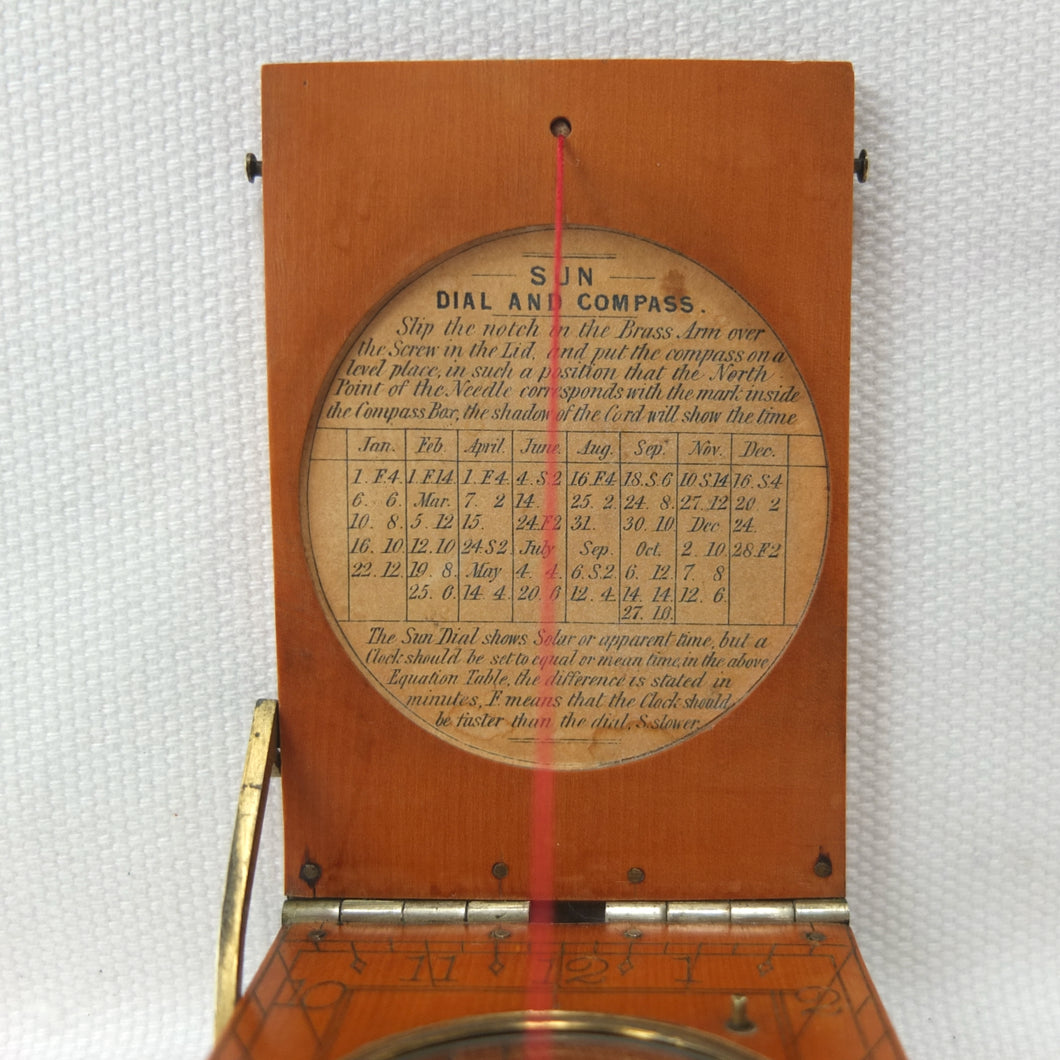 SUN
DIAL AND COMPASS.
Slip the notch in the Brass Arm over
the Screw in the Lid, and put the compass on a
level place, in such a position that the North
Point of the Needle corresponds with the mark inside
the Compass Box, the shadow of the Cord will show the time
Jan. Feb. April. June. Aug. Sep. Nov. Dec.
1. F.4. 1. F.14. 1. F.4. 4. S.2 16. F.4 18. S.6 10. S.14 16. S.4
6. 6. Mar. 7. 2 14. 25. 2. 24. 8. 27. 12 20. 2
10. 8. 5. 12 15. 24. F.2 31. 30. 10 Dec 24.
16. 10. 12. 10 24. S.2 July Sep. Oct. 2. 10. 28. F.2
22. 12. 19. 8. May 4. 4. 6. S.2. 6. 12. 7. 8
25. 6. 14. 4. 20. 6 12. 4. 14. 14. 12. 6.
27. 16.
The Sun Dial shows Solar or apparent time, but a
Clock should be set to equal or mean time, in the above
Equation Table, the difference is stated in
minutes, F. means that the Clock should
be faster than the dial, S. slower.
11 12 1